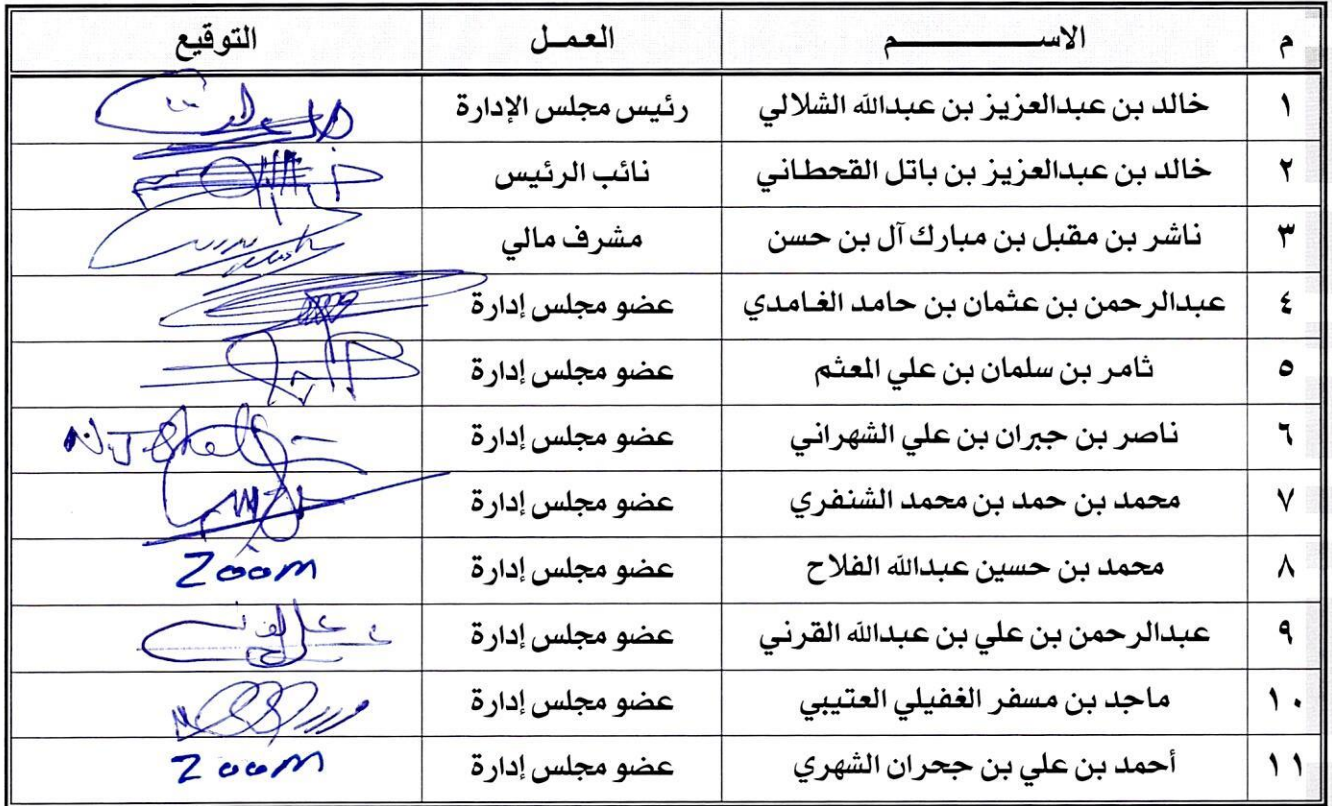 م الاســـــــــــــم العمــل التوقيع
١ خالد بن عبدالعزيز بن عبدالله الشلالي رئيس مجلس الإدارة
٢ خالد بن عبدالعزيز بن باتل القحطاني نائب الرئيس
٣ ناشر بن مقبل بن مبارك آل بن حسن مشرف مالي
٤ عبدالرحمن بن عثمان بن حامد الغامدي عضو مجلس إدارة
٥ ثامر بن سلمان بن علي المعثم عضو مجلس إدارة
٦ ناصر بن جبران بن علي الشهراني عضو مجلس إدارة
٧ محمد بن حمد بن محمد الشنفري عضو مجلس إدارة
٨ محمد بن حسين عبدالله الفلاح عضو مجلس إدارة Zoom
٩ عبدالرحمن بن علي بن عبدالله القرني عضو مجلس إدارة
١٠ ماجد بن مسفر الغفيلي العتيبي عضو مجلس إدارة
١١ أحمد بن علي بن جحران الشهري عضو مجلس إدارة Zoom